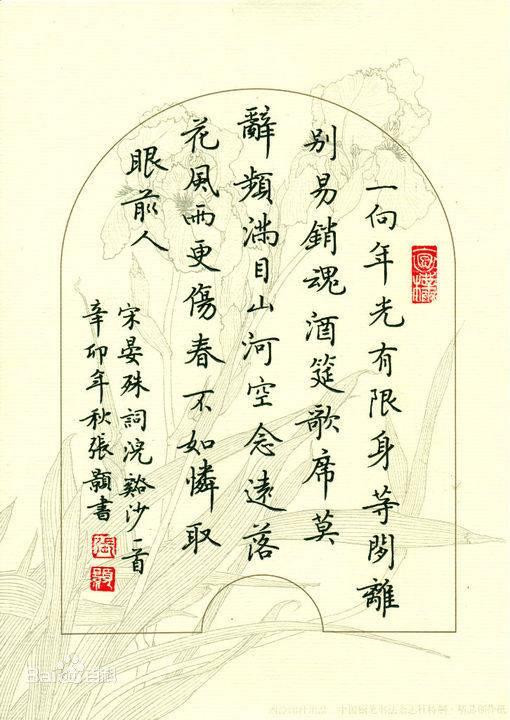 一向年光有限身等閒離
别易銷魂酒筵歌席莫
辭頻滿目山河空念遠落
花風雨更傷春不如憐取
眼前人
宋晏殊詞浣谿沙一首
辛卯年秋張顥書
張
顥
Baidu百科